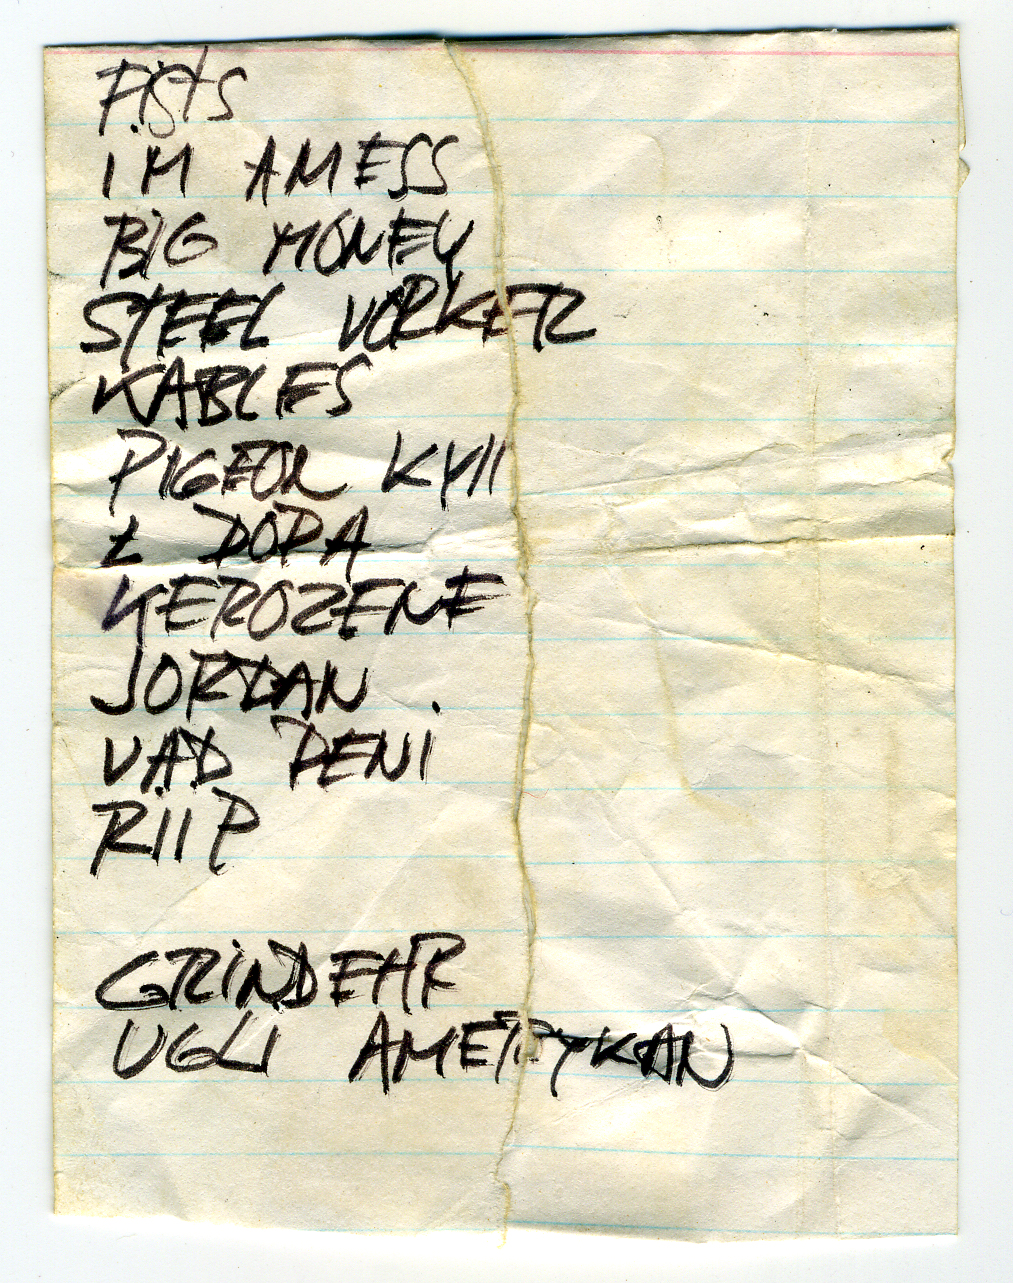 FISTS
IM A MESS
BIG MONEY
STEEL VORKER
KABLES
PIGEON KYII
Z DOPA
KEROZENE
JORDAN .
VAD DENI
RIIP
GRINDEHR
UGLI AMERYKAN